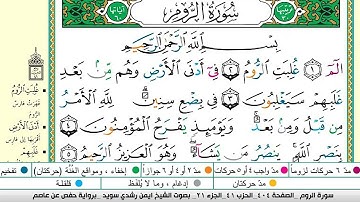 سُورَةُ الرُّومِ
بِسْمِ اللَّهِ الرَّحْمَٰنِ الرَّحِيمِ
الٓمٓ ١ غُلِبَتِ الرُّومُ ٢ فِي أَدْنَى الْأَرْضِ وَهُم مِّن بَعْدِ
غَلَبِهِمْ سَيَغْلِبُونَ ٣ فِي بِضْعِ سِنِينَ ۗ لِلَّهِ الْأَمْرُ
مِن قَبْلُ وَمِن بَعْدُ ۚ وَيَوْمَئِذٍ يَفْرَحُ الْمُؤْمِنُونَ ٤
بِنَصْرِ اللَّهِ ۚ يَنصُرُ مَن يَشَاءُ ۖ وَهُوَ الْعَزِيزُ الرَّحِيمُ ٥
غُلِبَتِ الرُّومُ
أَدْنَى الْأَرْضِ
غَلَبِهِمْ
مدّ ٦ حركات لزوماً مدّ ٢ أو ٤ أو ٦ جوازاً إخفاء، ومواقع الغُنَّة (حركتان) تفخيم
مدّ واجب ٤ أو ٥ حركات مدّ حركتان إدغام، وما لا يُلفَظ قلقلة
سورة الروم _ الصفحة ٤٠٤ _ الحزب ٤١ _ الجزء ٢١ _ بصوت الشيخ أيمن رشدي سويد _ برواية حفص عن عاصم